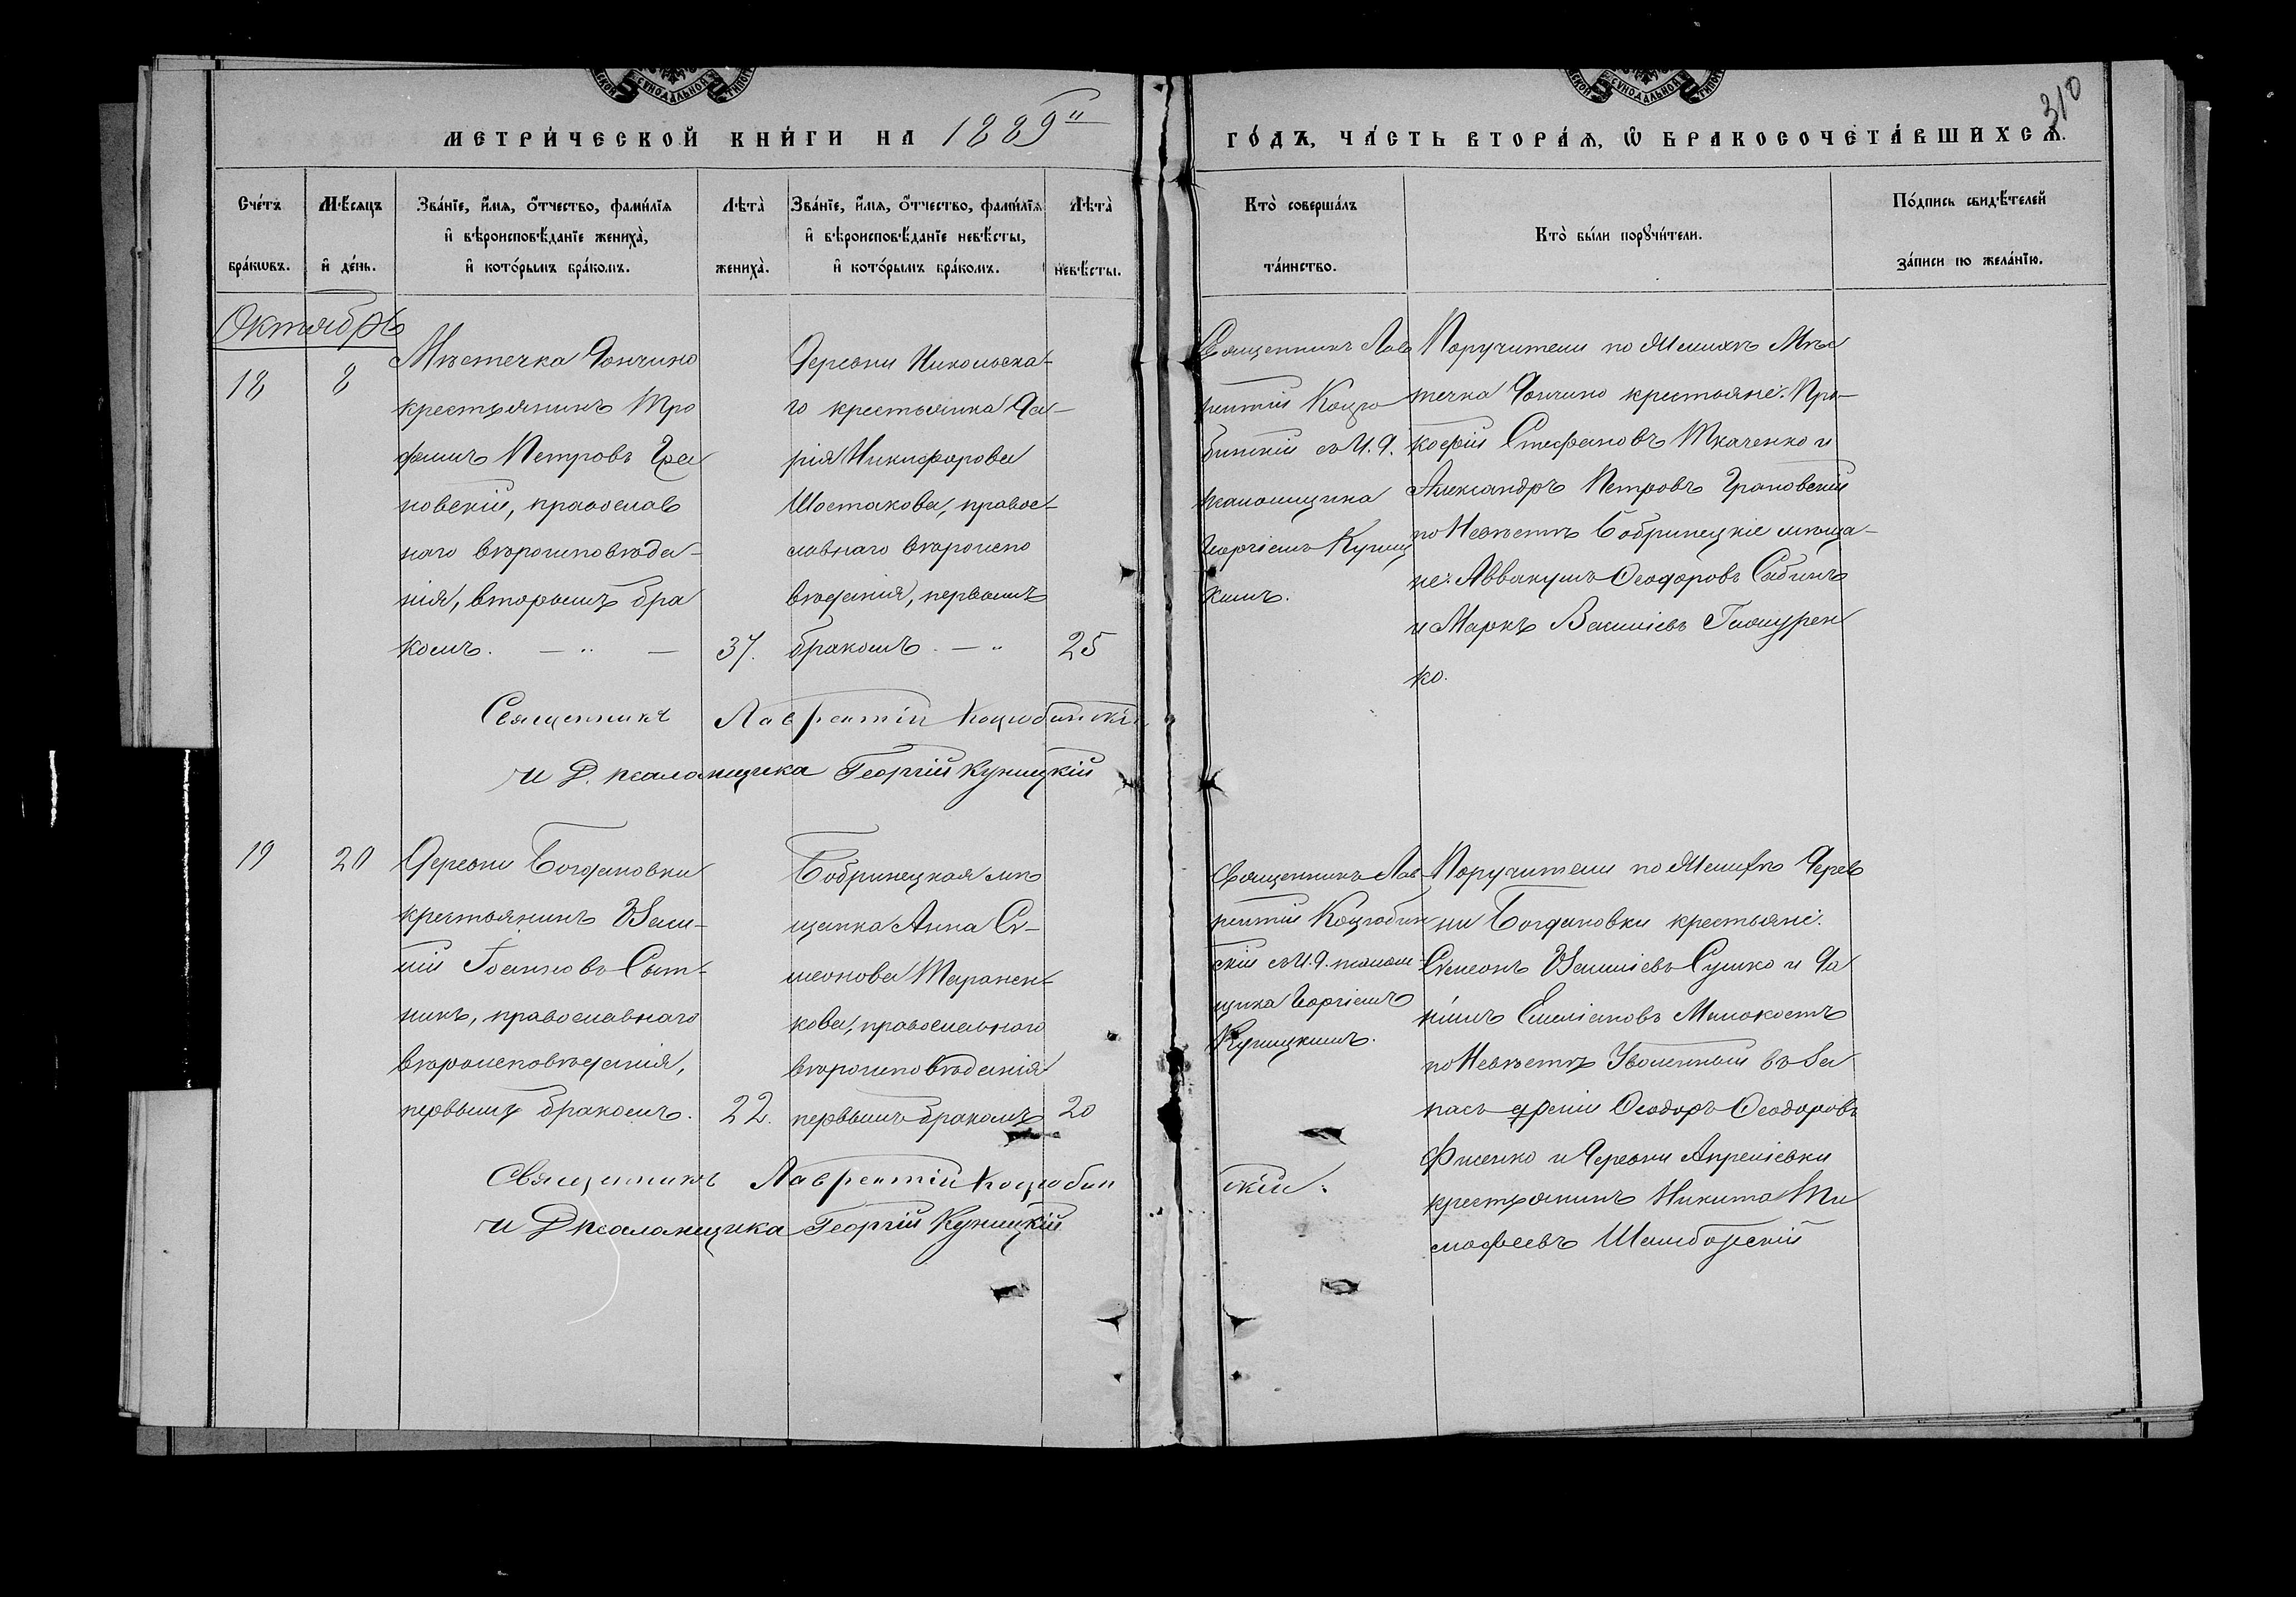 СѴНОДАЛЬНОЙ
СѴНОДАЛЬНОЙ
310
МЕТРИ́ЧЕСКОЙ КНИ́ГИ НА 1889й
ГО́ДЪ, ЧА́СТЬ ВТОРА́Ѧ, Ѽ БРАКОСОЧЕТА́ВШИХСѦ.
Сче́тъ
бра́кѡвъ.
Мѣ́сяцъ
и҆ де́нь.
Зва́нїе, и҆́мѧ, ѻ҆́тчество, фами́лїѧ
и҆ вѣроисповѣ́данїе жениха̀,
и҆ кото́рымъ бра́комъ.
Лѣта̀
жениха̀.
Зва́нїе, и҆́мѧ, ѻ҆́тчество, фами́лїѧ
и҆ вѣроисповѣ́данїе невѣ́сты,
и҆ кото́рымъ бра́комъ.
Лѣта̀
невѣ́сты.
Кто̀ соверша́лъ
та́инство.
Кто̀ бы́ли порꙋчи́тели.
По́дпись свидѣ́телей
за́писи по жела́нїю.
Октябрь
18
8
Мѣстечка Дончино
крестьянинъ Тро
фимъ Петровъ Гра
новскій, православ
наго вѣроисповѣда-
нія, вторымъ бра
комъ. — „ —
37.
Деревни Никольска-
го крестьянка Да-
рія Никифорова
Шостакова, правос-
лавнаго вѣроиспо
вѣданія, первымъ
бракомъ. — „
25
Священникъ Лав
рентій Коцю
бинскій съ И. Д.
псаломщика
Георгіемъ Куниц
кимъ.
Поручители по Женихѣ Мѣс
течка Дончино крестьяне: Про-
кофій Стефановъ Ткаченко и
Александръ Петровъ Грановскій
по Невѣстѣ Бобринецкіе мѣща-
не: Аввакумъ Ѳеодоровъ Сабинъ
и Маркъ Василіевъ
ко.
Священникъ Лаврентій Коцюбинскій
и Д. псаломщика Георгій Куницкій
19
20
Деревни Богдановки
крестьянинъ Васи-
лій Іоанновъ Сыт-
никъ, православнаго
вѣроисповѣданія,
первымъ бракомъ.
22.
Бобринецкая мѣ
щанка Анна Си-
меонова Таранен-
кова, православнаго
вѣроисповѣданія
первымъ бракомъ
20
Священникъ Лав-
рентій Коцюбин
скій съ И. Д. псалом-
щика Георгіемъ
Куницкимъ.
Поручители по Женихѣ Дерев
ни Богдановки крестьяне:
Симеонъ Василіевъ Сушко и Да
ніилъ Емиліановъ
по Невѣстѣ Уволенный въ За
пасъ арміи Ѳеодоръ Ѳеодоровъ
Фисенко и Деревни Апреліевки
крестьянинъ Никита Ти
мофеевъ Шамборскій
Священникъ Лаврентій Коцюбин
скій.
и Д псаломщика Георгій Куницкій